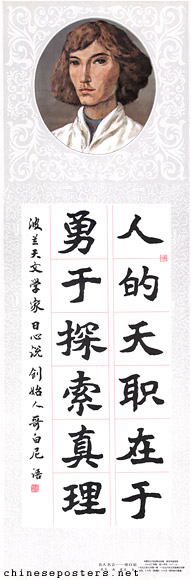 人的天职在于
勇于探索真理
波兰天文学家 日心说 创始人 哥白尼 语
chineseposters.net